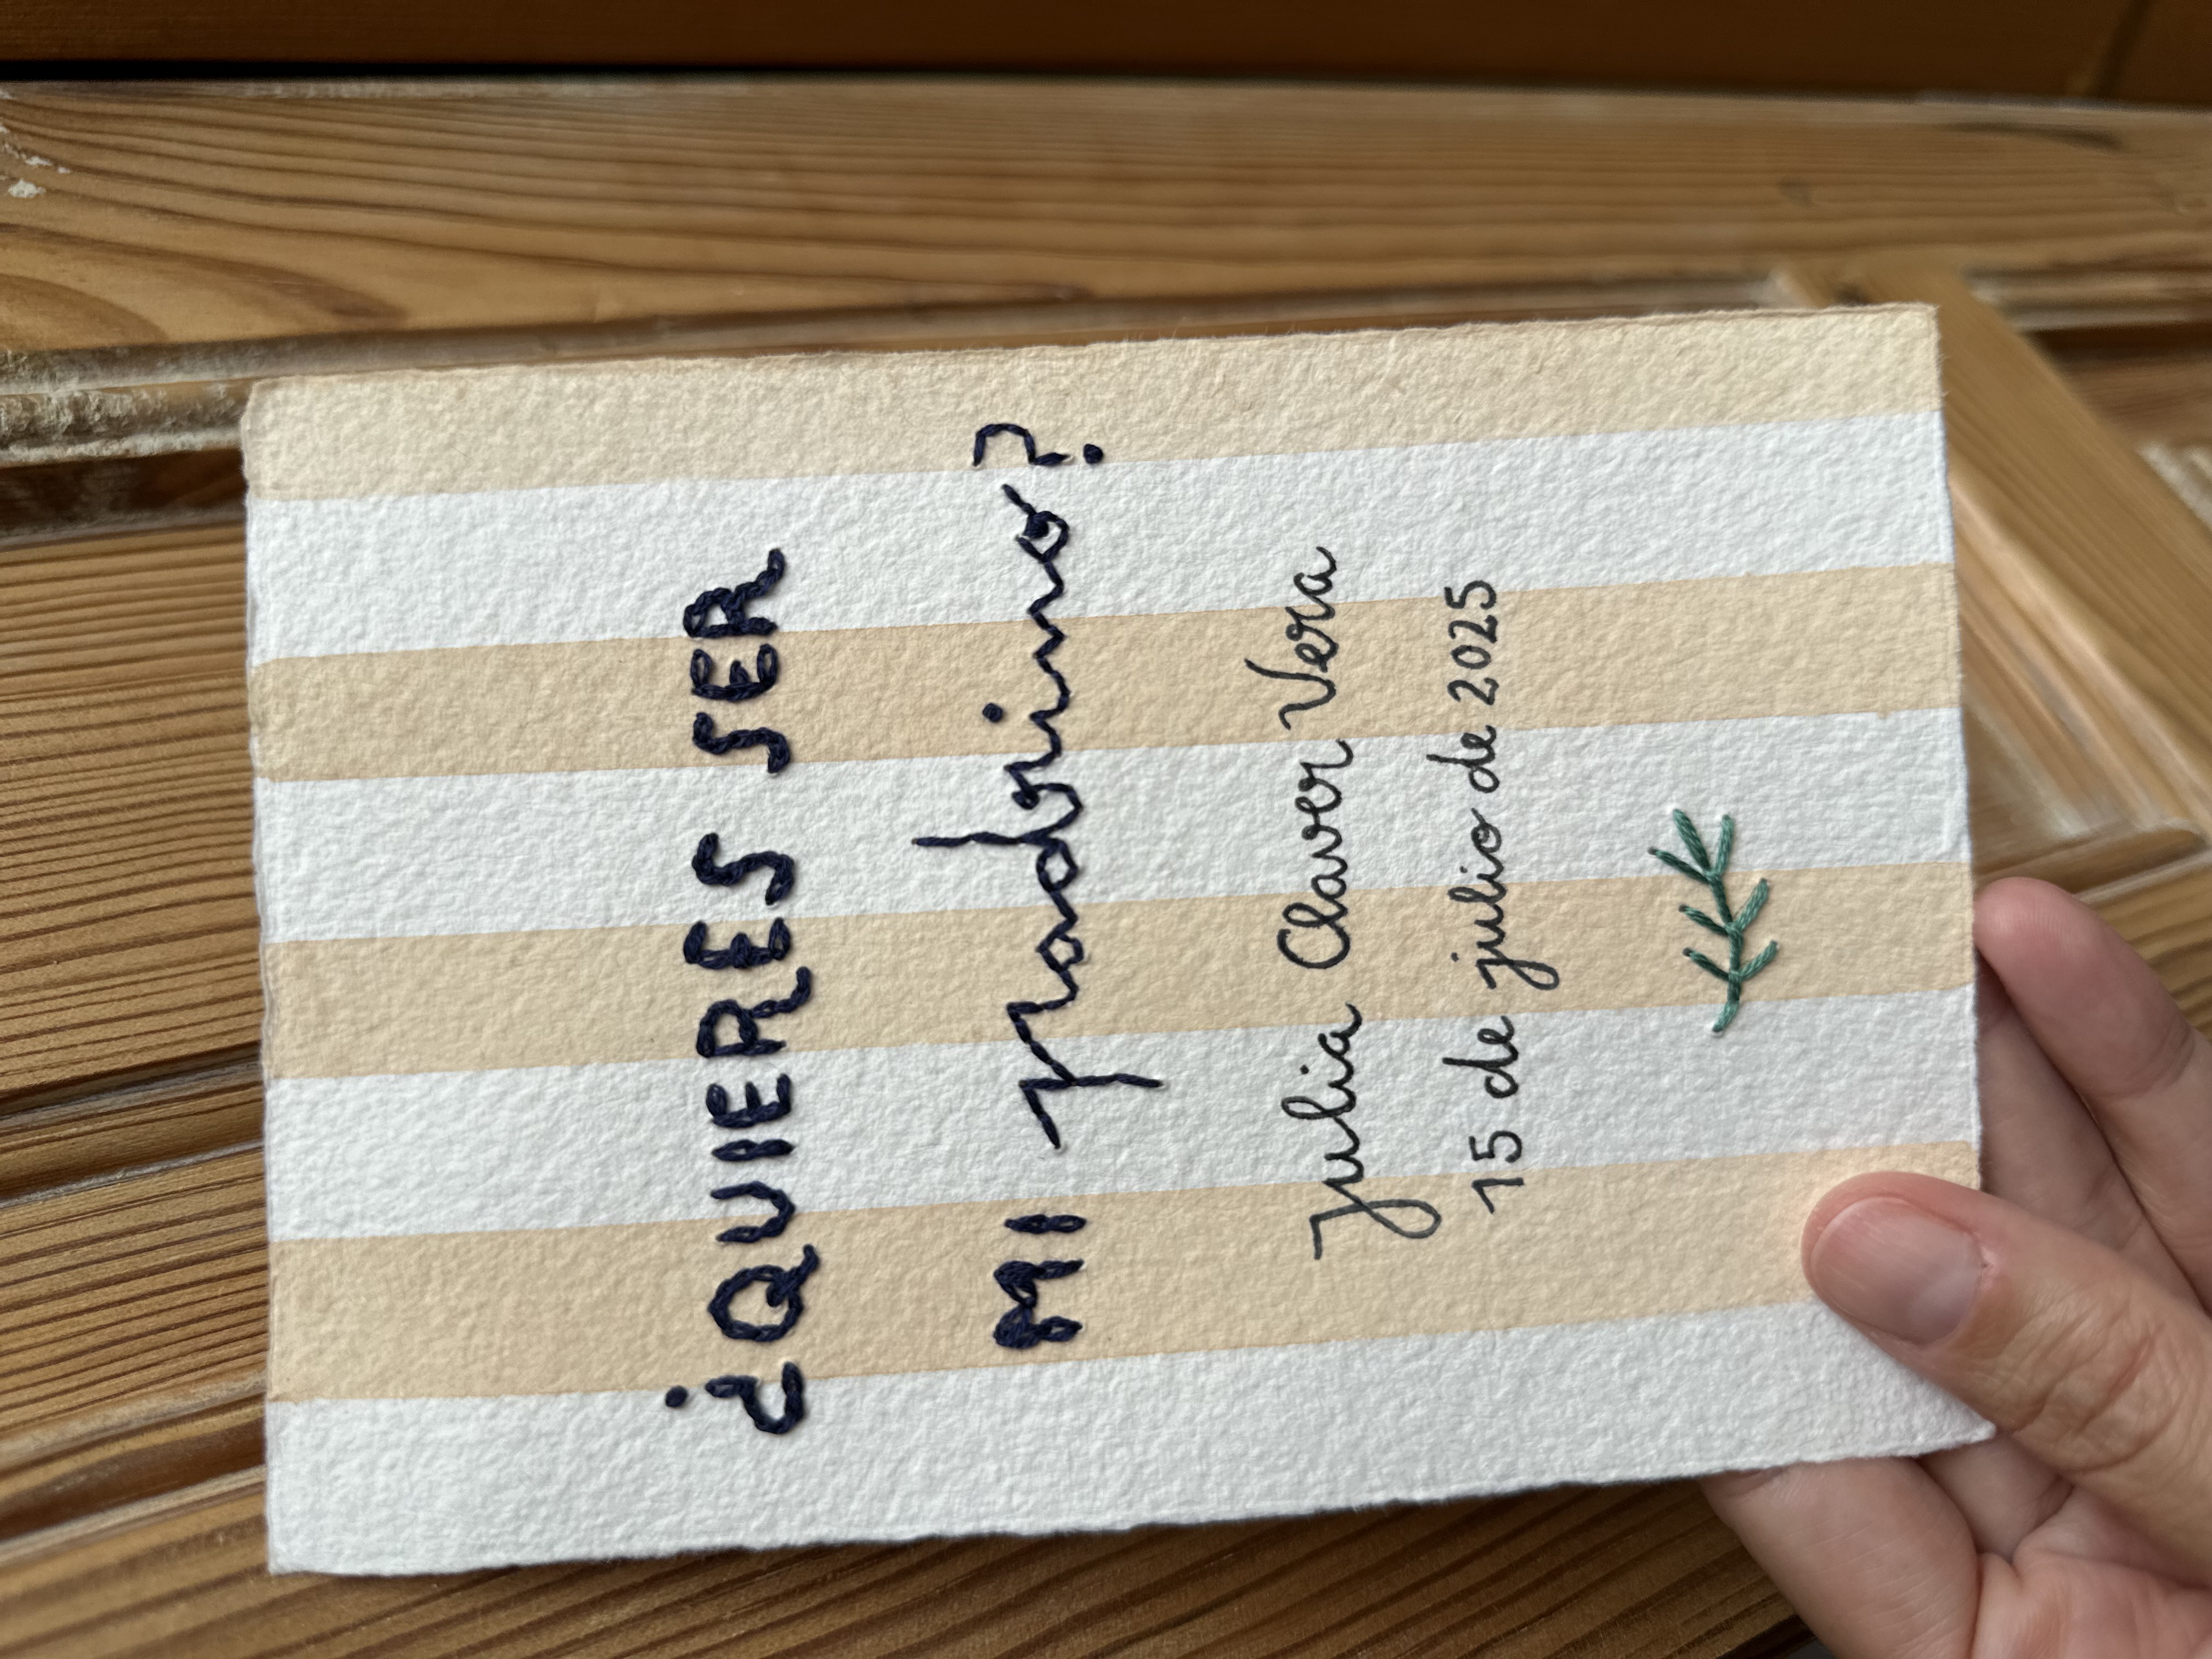 ¿QUIERES SER
MI padrino?
Julia Claver Vera
15 de julio de 2025